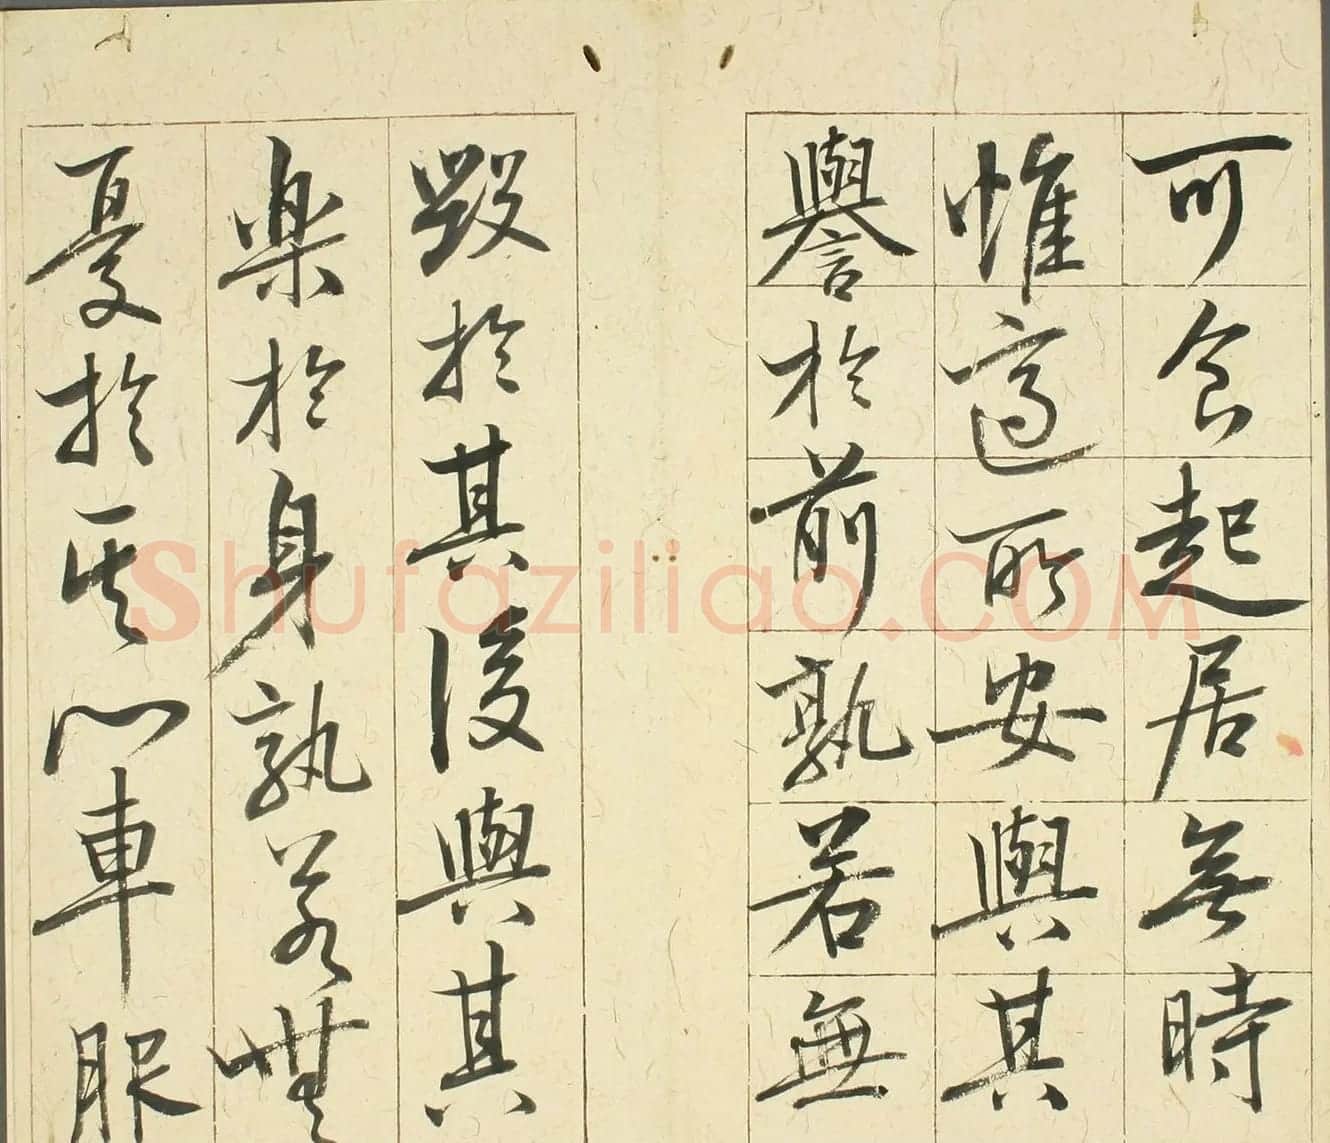 可食起居無時
惟適所安與其
譽於前孰若無
毀於其後與其
樂於身孰若無
憂於其心車服
Shufaziliao.COM